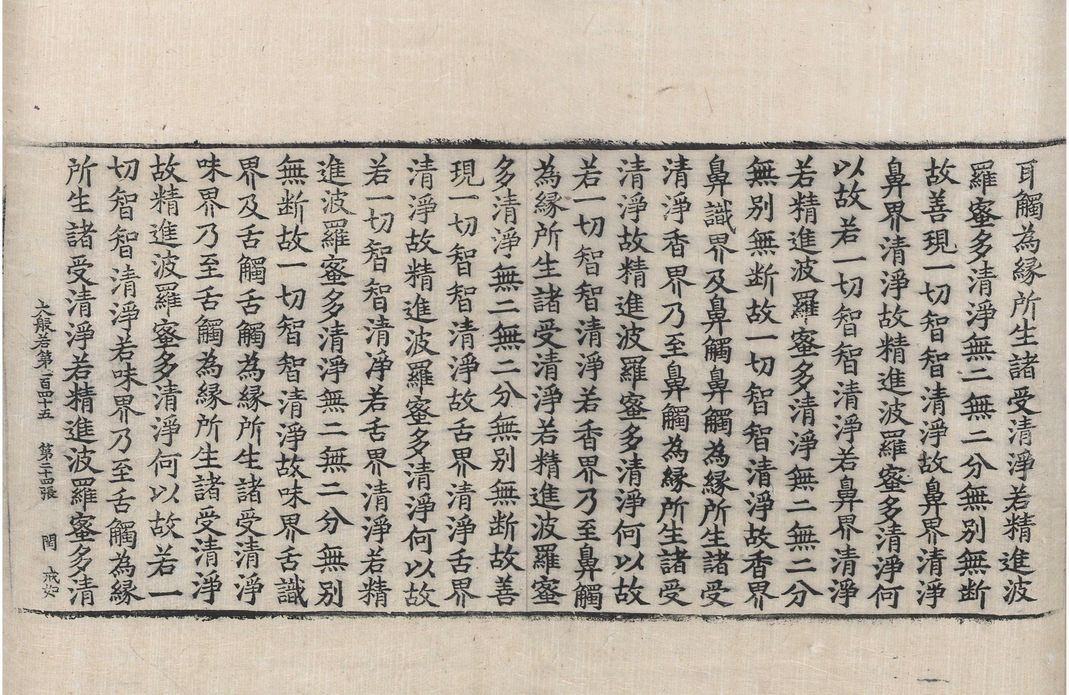 耳觸為縁所生諸受清淨若精進波
羅蜜多清淨無二無二分無別無断
故善現一切智智清淨故鼻界清淨
鼻界清淨故精進波羅蜜多清淨何
以故若一切智智清淨若鼻界清淨
若精進波羅蜜多清淨無二無二分
無別無断故一切智智清淨故香界
鼻識界及鼻觸鼻觸為縁所生諸受
清淨香界乃至鼻觸為縁所生諸受
清淨故精進波羅蜜多清淨何以故
若一切智智清淨若香界乃至鼻觸
為縁所生諸受清淨若精進波羅蜜
多清淨無二無二分無別無断故善
現一切智智清淨故舌界清淨舌界
清淨故精進波羅蜜多清淨何以故
若一切智智清淨若舌界清淨若精
進波羅蜜多清淨無二無二分無別
無断故一切智智清淨故味界舌識
界及舌觸舌觸為縁所生諸受清淨
味界乃至舌觸為縁所生諸受清淨
故精進波羅蜜多清淨何以故若一
切智智清淨若味界乃至舌觸為縁
所生諸受清淨若精進波羅蜜多清
大般若第一百四十五 第二十四張 閏 戒如